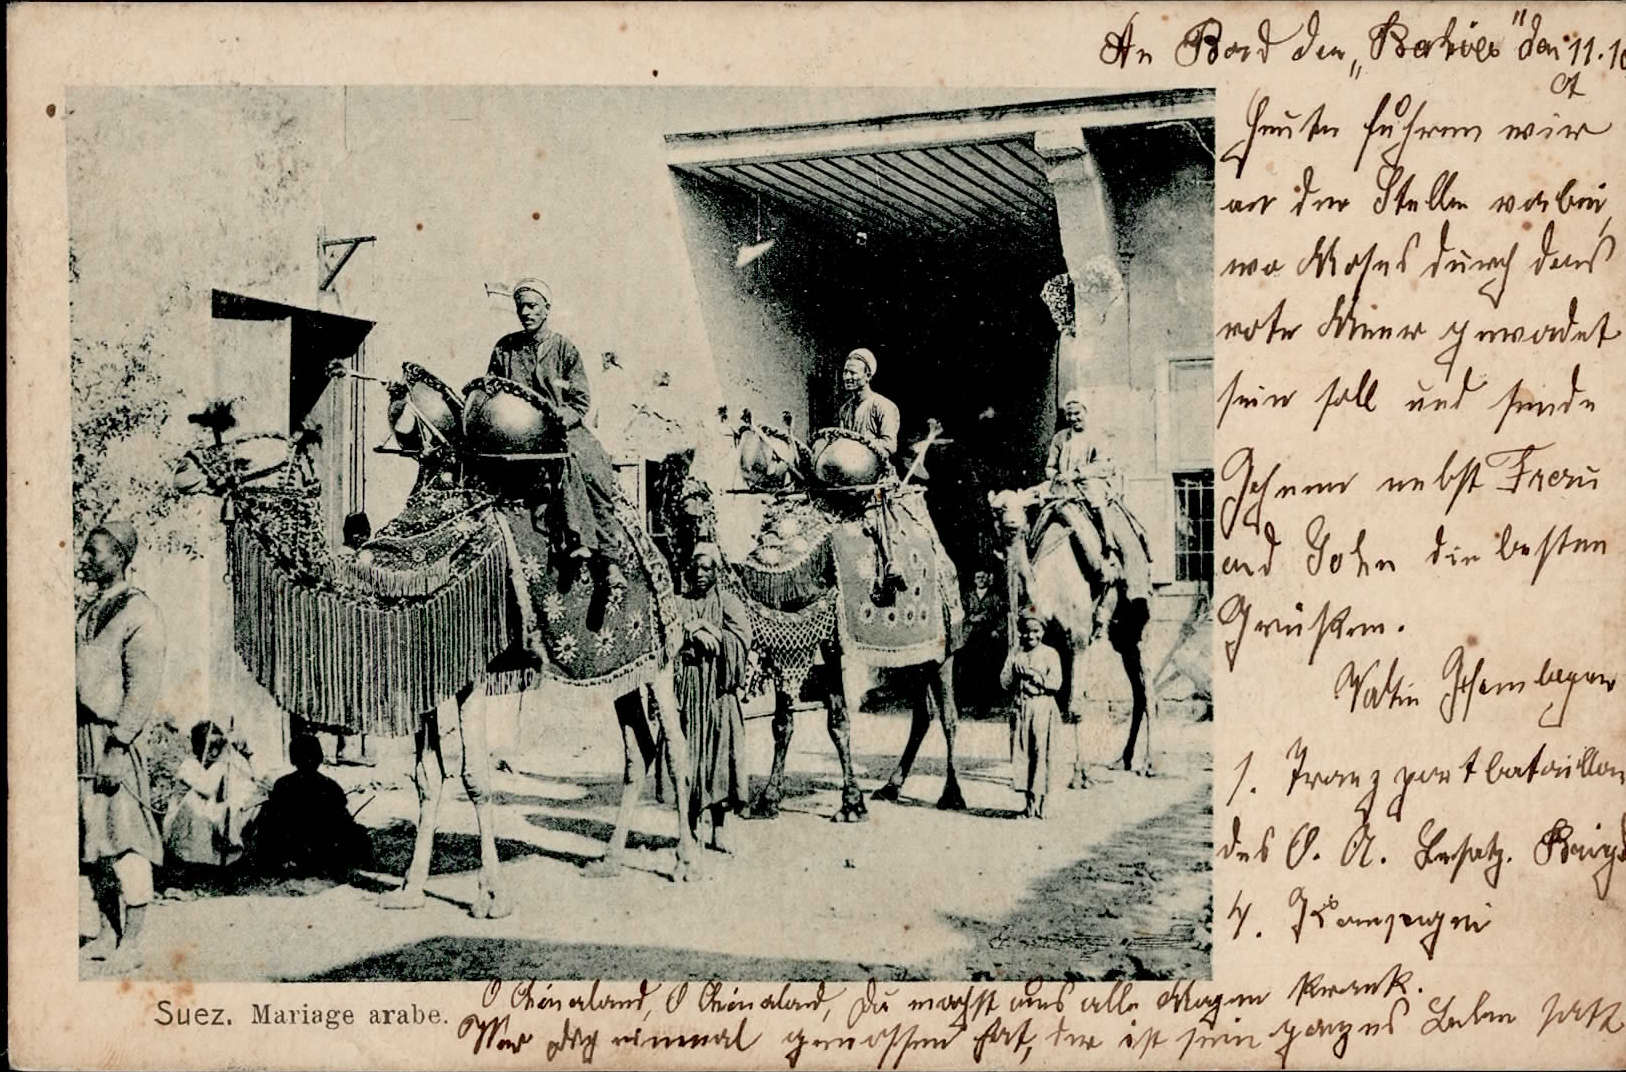 An Bord der „Bahia" den 11.10
Heute fuhren wir
an der Stelle vorbei,
wo Moses durch das
rote Meer gewadet
sein soll und sende
Ihnen nebst Frau
und Sohn die besten
Grüßen.
1. Transportbataillon
des O. A. Besatz. Brigd
4. Kompagnie
O Chinaland, O Chinaland, Du machst uns alle Magen krank.
Wer dich einmal genossen hat, der ist sein ganzes Leben satt
Suez. Mariage arabe.